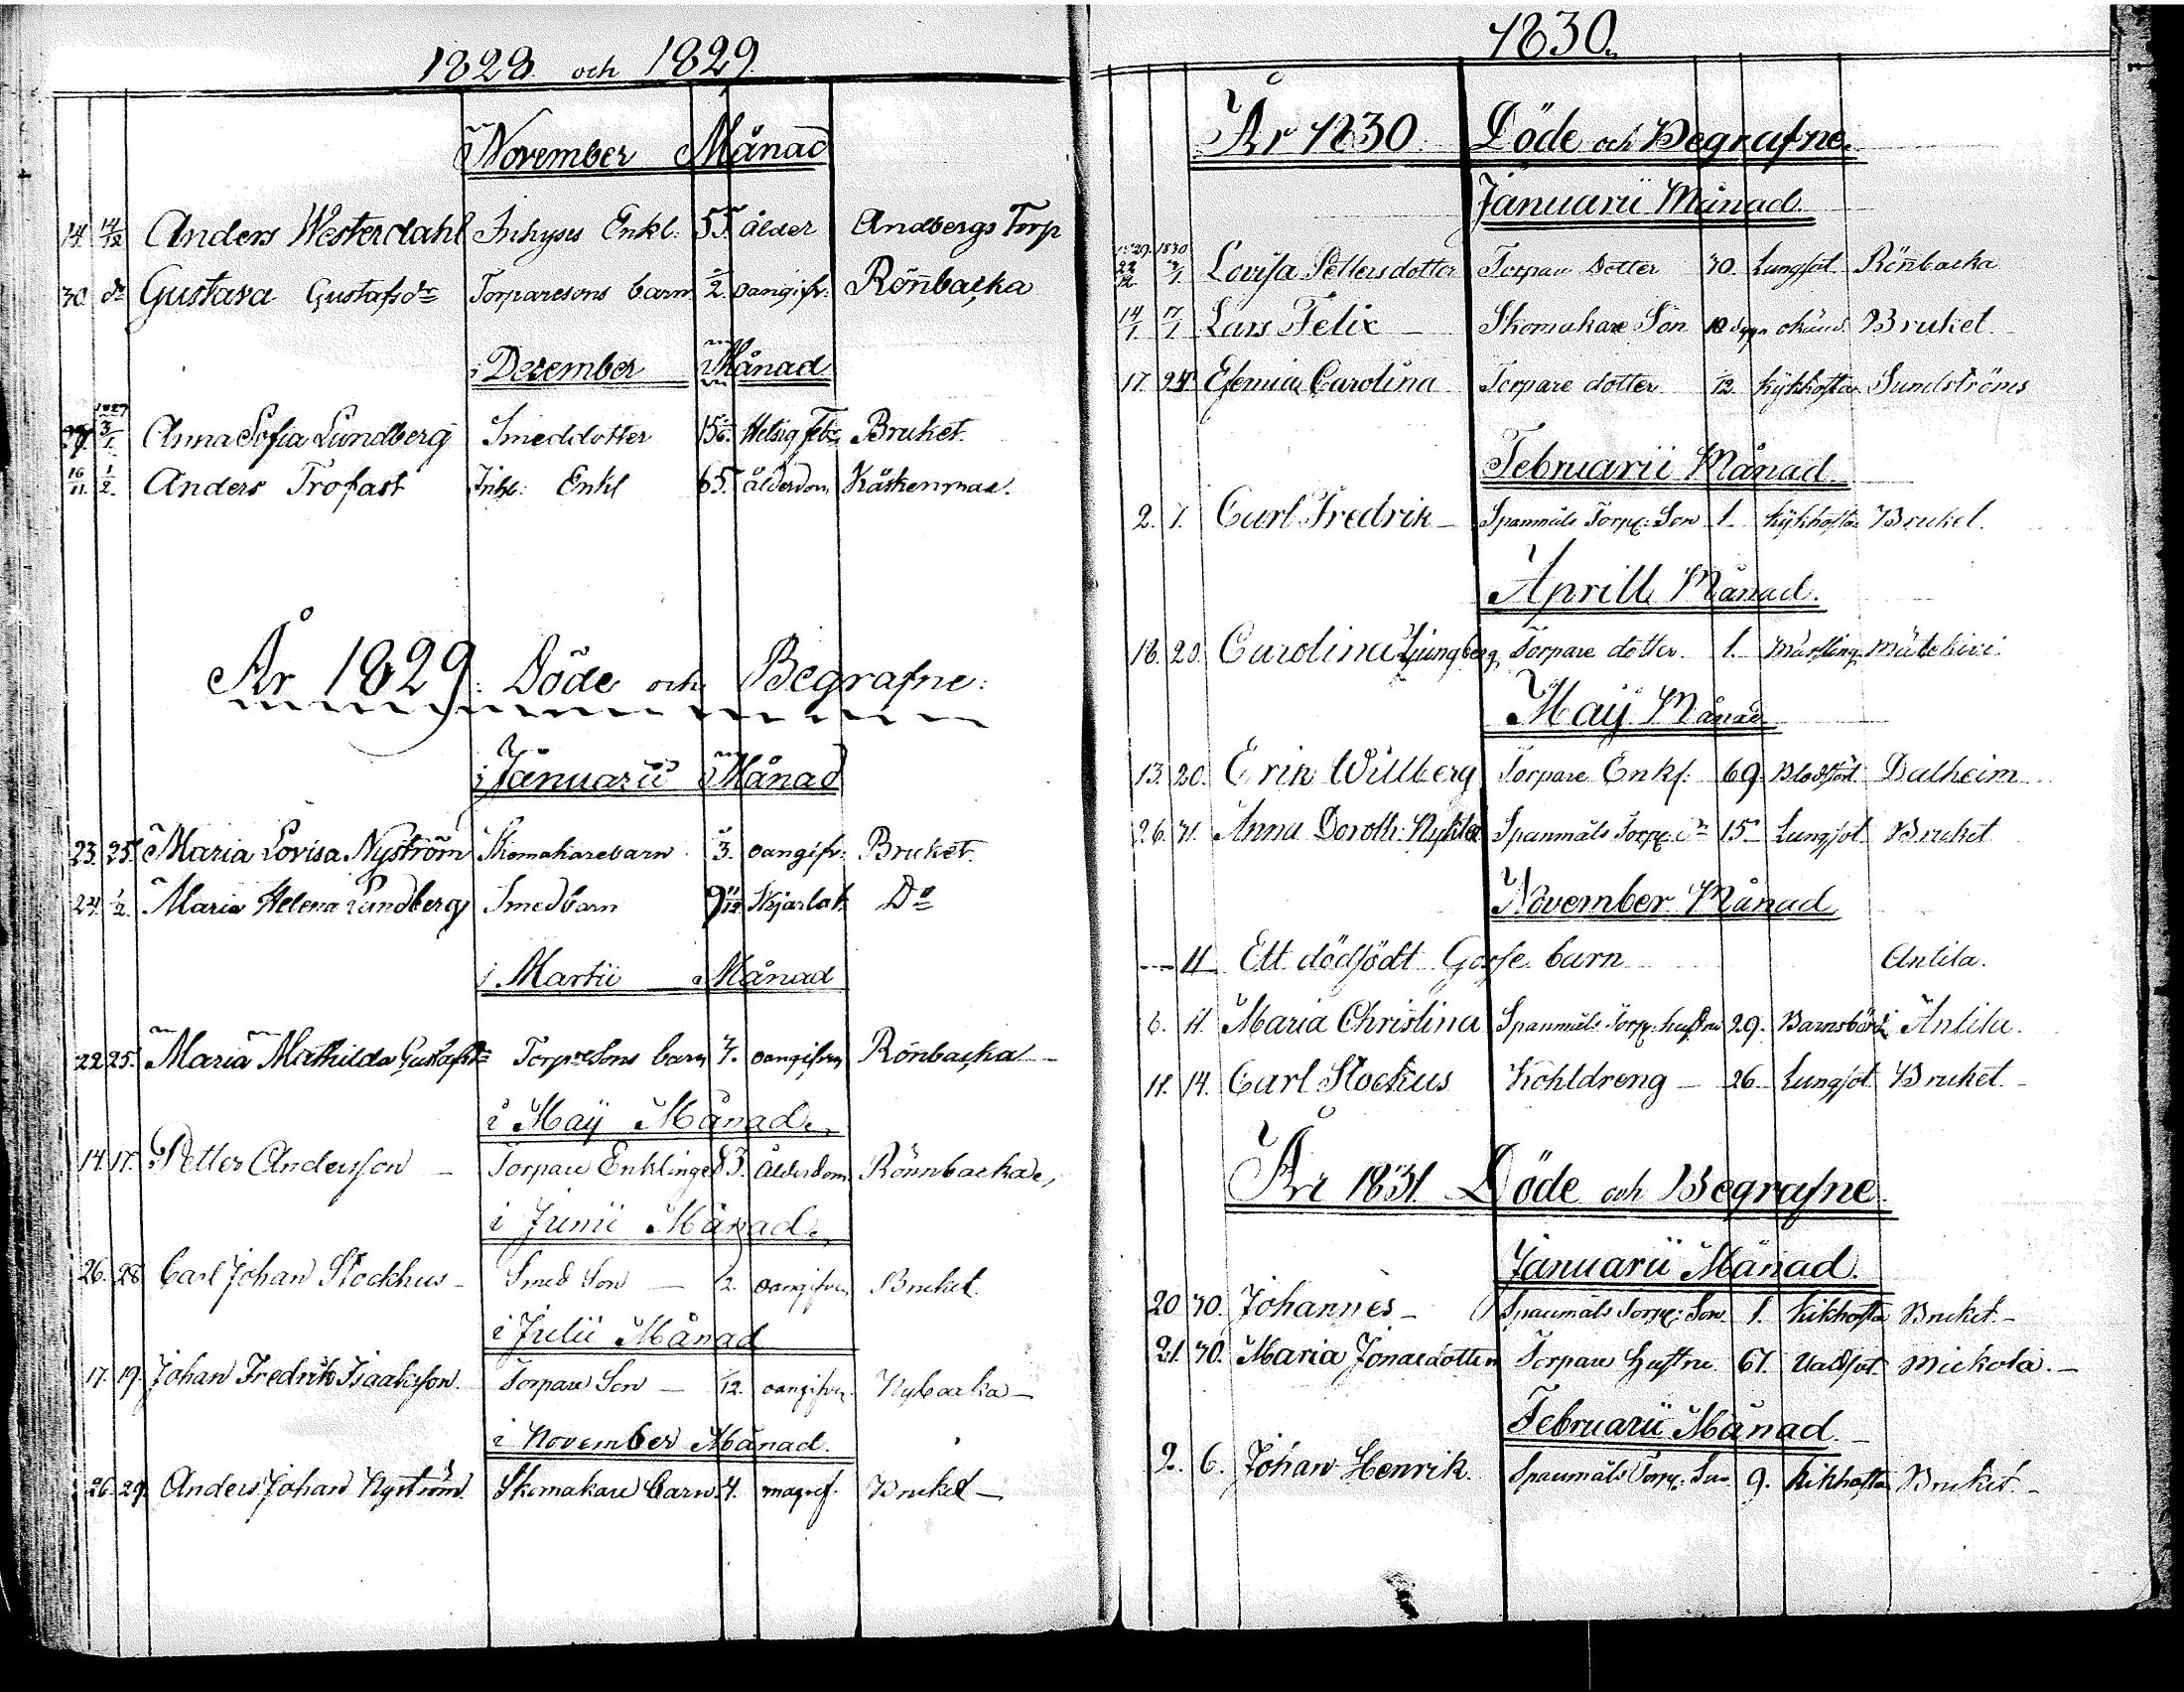 1828. och 1829.
November Månad
14. 14/12 Anders Westerdahl Inhyses Enkl: 55. ålder Andbergs Torp
30. do Gustava Gustafsdr Torparesons barn 1/2. oangifv: Rönbacka
i December Månad
1829
27. 3/1. Anna Sofia Lundberg Smeddotter 15 Hetsig Feb: Bruket.
16/11. 1/2. Anders Trofast Inh: Enkl 65. ålderdom
År 1829: Döde och Begrafne:
i Januarii Månad
23. 25. Maria Lovisa Nyström Skomakarebarn 3. oangifv: Bruket.
24. 1/2. Maria Helena Lundberg Smedbarn 9 Skjarlak: Do
i Martii Månad
22. 25. Maria Mathilda Gustafsdr Torpresons barn oangifven Rönbacka -
i Maij Månad.
14. 17. Petter Andersson - Torpare Enklinge 83. Ålderdom Rönnbacka,
i Junii Månad.
26. 28 Carl Johan Stockhus - Smed Son - 2. oangifven Bruket.
i Julii Månad
17. 19. Johan Fredrik Isaaksson. Torpare Son - 1/12. oangifven. Nybacka -
i November Månad.
26. 29. Anders Johan Nyström. Skomakare barn 4. magref. Bruket -
1830.
År 1830. Döde och Begrafne.
Januarii Månad.
1829. 1830
22/12 3/1. Lovisa Pettersdotter Torpare Dotter 30. Lungsot. Rönbacka
14/1 17/1 Lars Felix - Skomakare Son 10 dygn okänd. Bruket.
17. 24. Efemia Carolina Torpare dotter 1/12. kikhosta Sundströms
Februarii Månad.
2. 7. Carl Fredrik - Spanmåls Torp: Son 1. kikhosta Bruket.
Aprill Månad.
16. 20. Carolina Ljungberg Torpare dotter. 1. Mässling
Maij Månad
13. 20. Erik Willberg Torpare Enkl: 69. Blodsot. Dalheim
26. 31. Anna Doroth: Spanmåls Torp: 15 Lungsot Bruket
November Månad
--- 11 Ett dödfödt Gosse barn Antila.
6. 11. Maria Christina Spanmåls Torp: hustru 29. Barnsbörd Antila.
11. 14. Carl Stockus Kohldreng - 26. Lungsot Bruket -
År 1831. Döde och Begrafne.
Januarii Månad.
20 30. Johannes - Spanmåls Torp: Son. 1. kikhosta Bruket. -
21. 30. Maria Jonaedotter Torpare Hustru. 67. Mickola. -
Februarii Månad. -
2. 6. Johan Henrik. Spanmåls Torp: Son. 9. Kikhosta Bruket. -